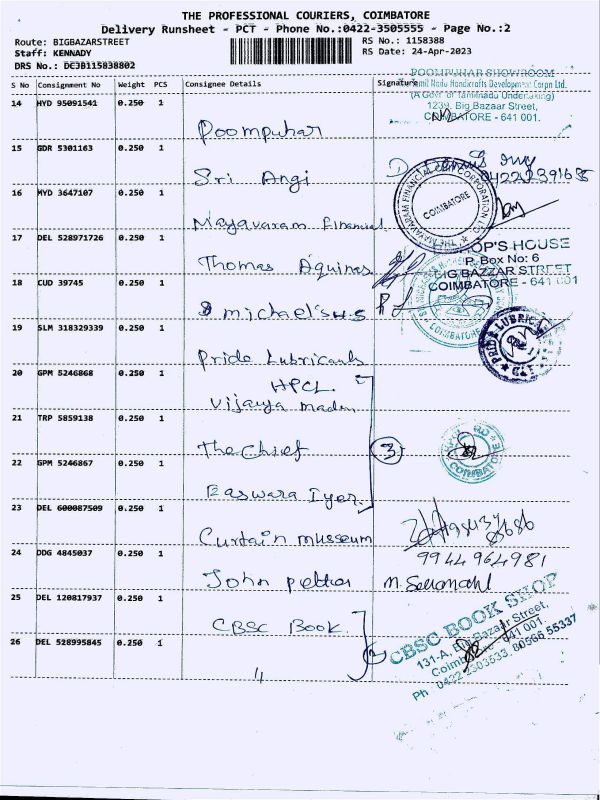 THE PROFESSIONAL COURIERS, COIMBATORE
Delivery Runsheet - PCT - Phone No.:0422-3505555 - Page No.:2
Route: BIGBAZARSTREET RS No.: 1158388
Staff: KENNADY RS Date: 24-Apr-2023
DRS No.: DCJB115838802
S No Consignment No Weight PCS Consignee Details Signature
POOMPUHAR SHOWROOM
Tamil Nadu Handicrafts Development Corpn Ltd.
(A Govt of Tamilnadu Undertaking)
1239, Big Bazaar Street,
COIMBATORE - 641 001.
14 HYD 95091541 0.250 1 Poompuhar
15 GDR 5301163 0.250 1 Sri Angi
04222391685
16 HYD 3647107 0.250 1 Mayavaram Financial
COIMBATORE
17 DEL 528971726 0.250 1 Thomas Aquinas
OP'S HOUSE
P. Box No: 6
BIG BAZZAR STREET
COIMBATORE - 641 001
18 CUD 39745 0.250 1 S michael's H.S
19 SLM 318329339 0.250 1 Pride Lubricants
PRIDE LUBRICAN
20 GPM 5246868 0.250 1 HPCL.
Vijaya
21 TRP 5859138 0.250 1 The Chief
3
22 GPM 5246867 0.250 1 Easwara Iyer
23 DEL 600087509 0.250 1 Curtain musseum
9944964981
24 DDG 4845037 0.250 1 John
25 DEL 120817937 0.250 1 CBSC Book.
26 DEL 528995845 0.250 1 "
CBSC BOOK SHOP
131-A, Big Bazaar Street,
Coimbatore 641 001.
Ph : 0422 2303533, 80566 55337